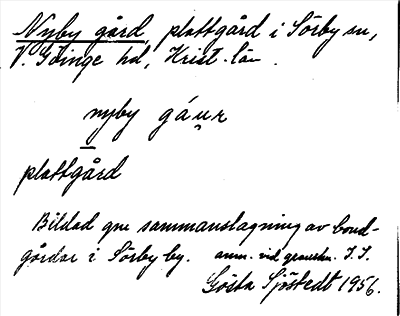 Nyby gård, plattgård i Sörby sn,
V. Göinge hd, Krist. län.
nyby gáur
plattgård
Bildad gm sammanslagning av bond-
gårdar i Sörby by. anm. vid granskn. I.I.
Gösta Sjöstedt 1956.